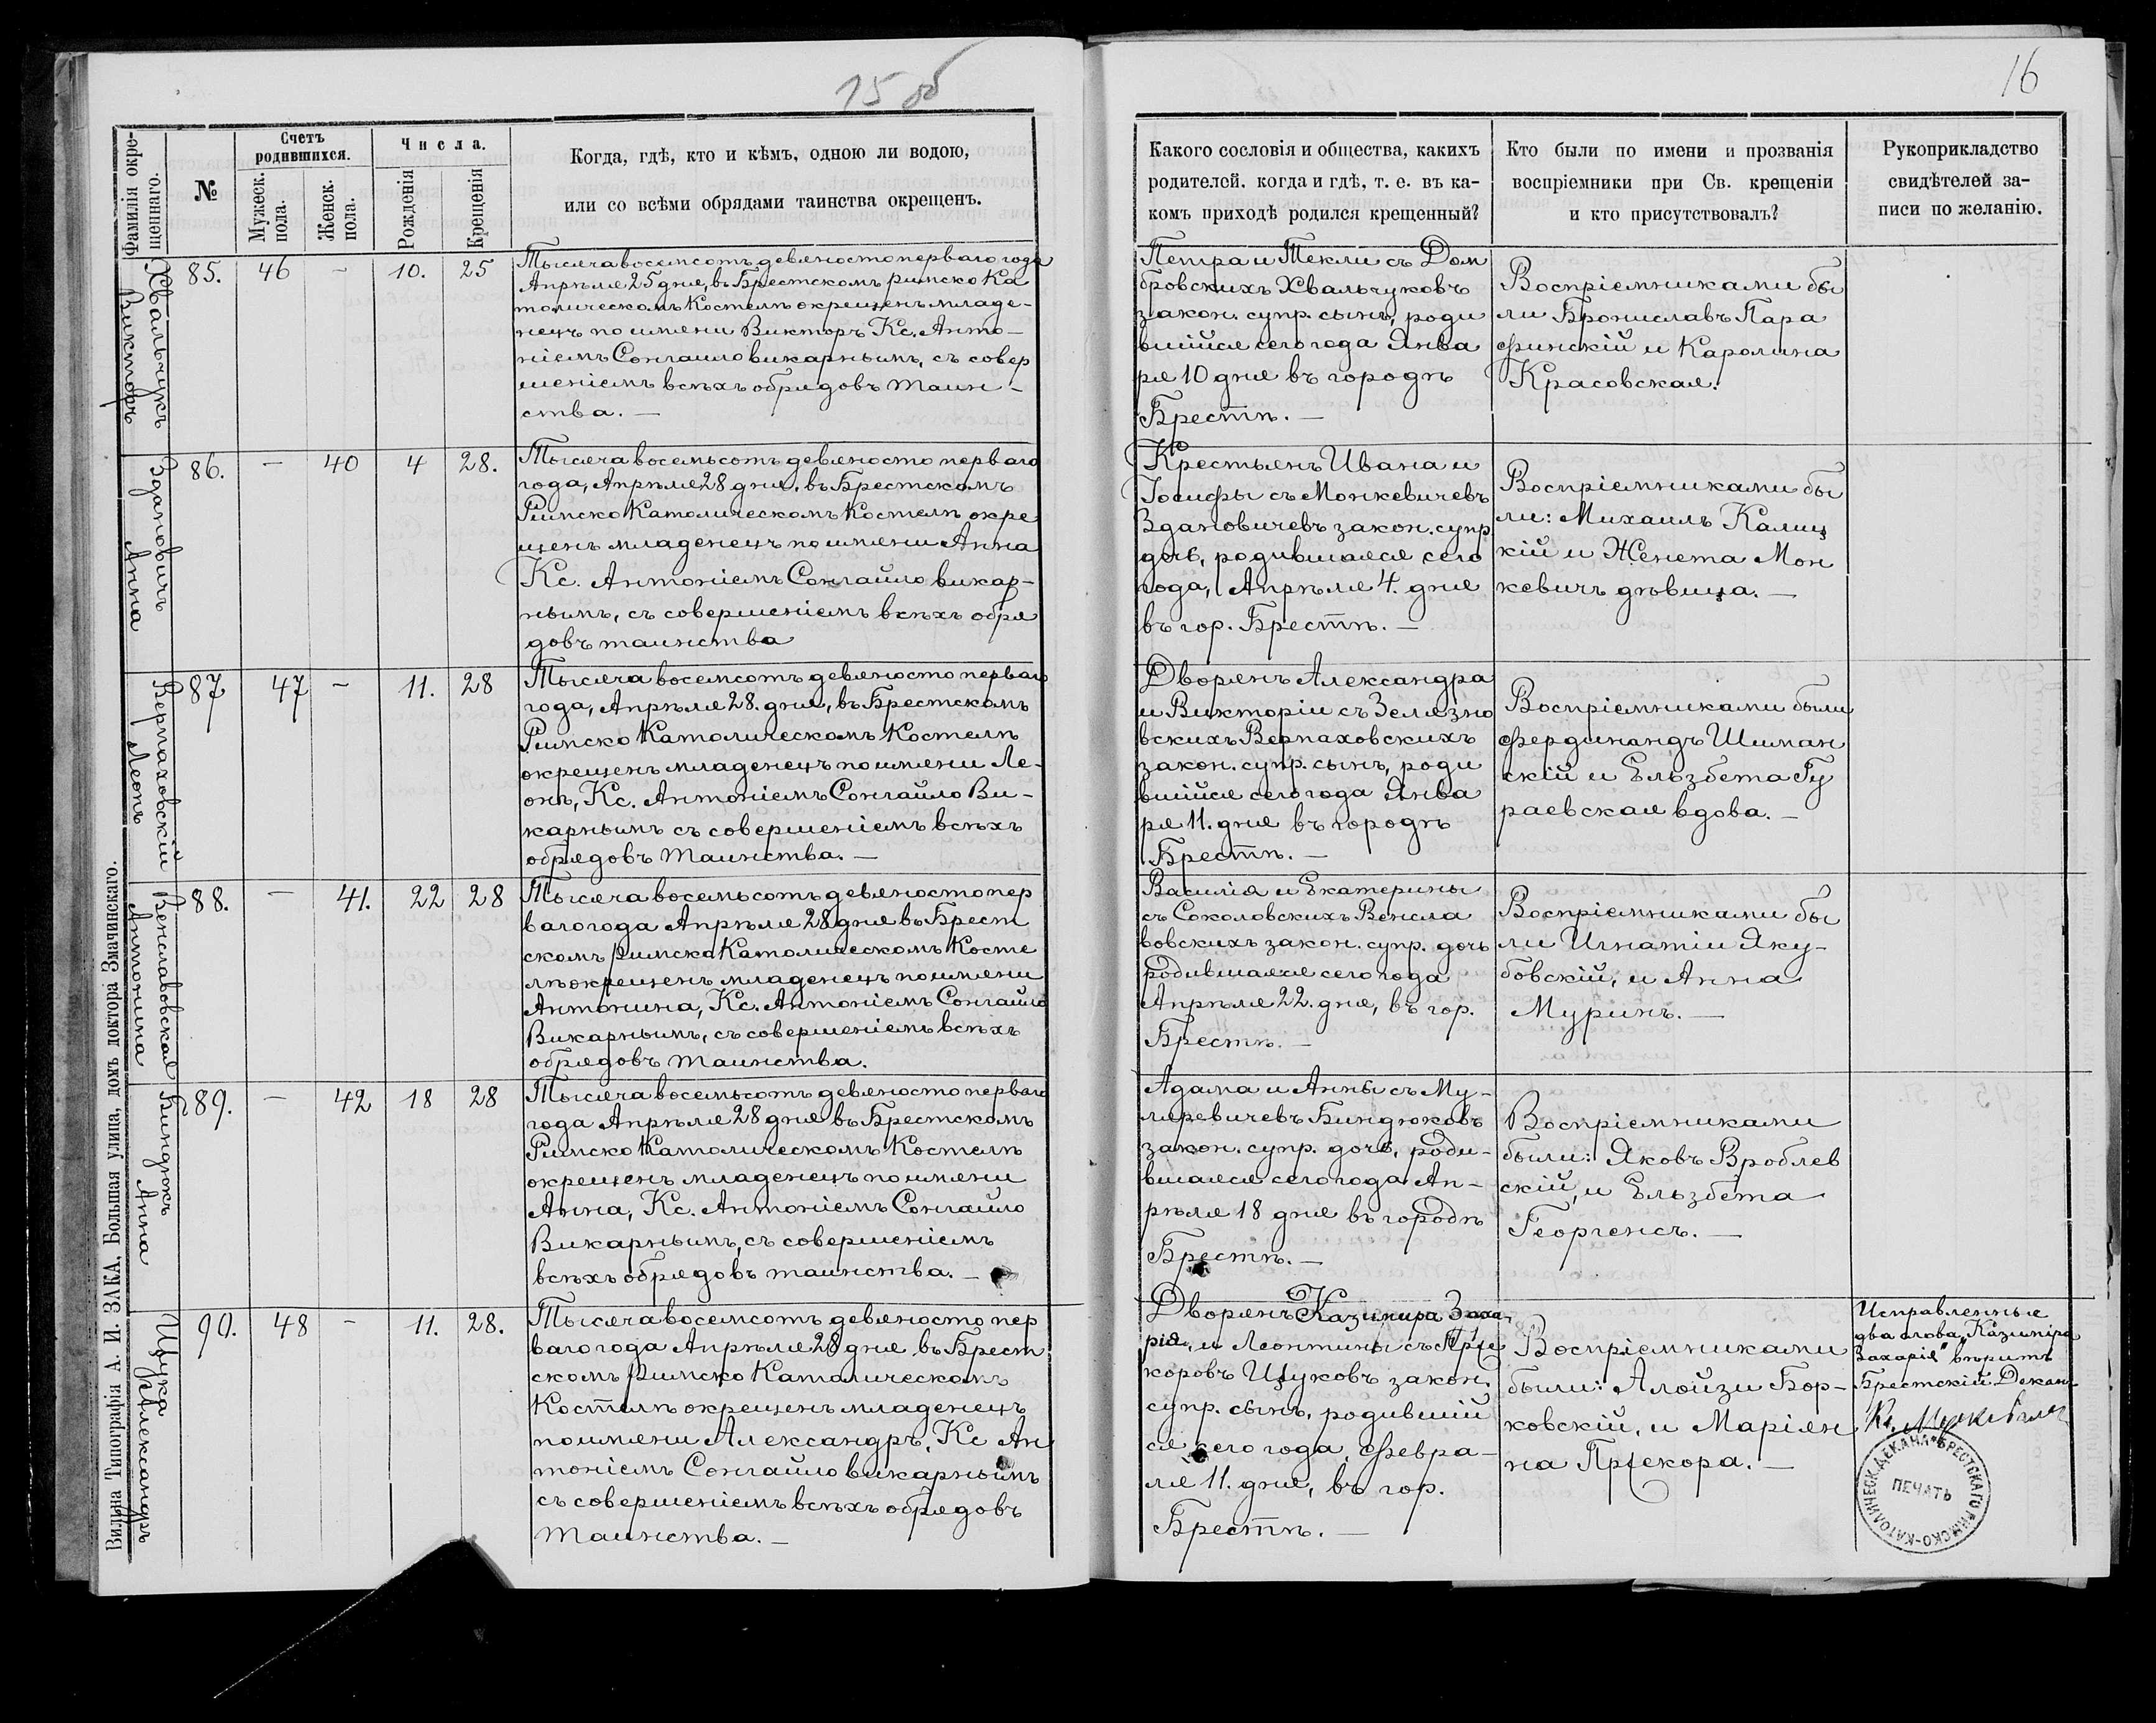 15 об
Фамилія окре-
щеннаго.
№
Счетъ
родившихся.
Мужеск.
пола.
Женск.
пола.
Числа.
Рожденія
Крещенія
Когда, гдѣ, кто и кѣмъ, одною ли водою,
или со всѣми обрядами таинства окрещенъ.
Хвальчукъ
Викторъ
85. 46 - 10. 25
Тысяча восемсотъ девяносто перваго года
Апрѣля 25 дня, въ Брестскомъ римско Ка
толическомъ Костелѣ окрещенъ младе-
нецъ по имени Викторъ Кс. Анто-
ніемъ Сонгайло викарнымъ, съ совер
шеніемъ всѣхъ обрядовъ таин-
ства. —
Здановичъ
Анна
86. — 40 4 28.
Тысяча восемьсотъ девяносто перваго
года, Апрѣля 28 дня, въ Брестскомъ
Римско Католическомъ Костелѣ окре
щенъ младенецъ по имени Анна
Кс. Антоніемъ Сонгайло викар-
нымъ, съ совершеніемъ всѣхъ обря
довъ таинства
Верпаховскій
Леонъ
87 47 - 11. 28
Тысяча восемсотъ девяносто перваго
года, Апрѣля 28. дня, въ Брестскомъ
Римско Католическомъ Костелѣ
окрещенъ младенецъ по имени Ле-
онъ, Кс. Антоніемъ Сонгайло Ви-
карнымъ съ совершеніемъ всѣхъ
обрядовъ таинства. —
Венславовская
Антонина
88. — 41. 22 28
Тысяча восемьсотъ девяносто пер
ваго года Апрѣля 28 дня въ Брест
скомъ римско Католическомъ Косте
лѣ окрещенъ младенецъ по имени
Антонина, Кс. Антоніемъ Сонгайло
Викарнымъ, съ совершеніемъ всѣхъ
обрядовъ таинства.
Биндюкъ
Анна
89. — 42 18 28
Тысяча восемьсотъ девяносто перваго
года Апрѣля 28 дня въ Брестскомъ
Римско Католическомъ Костелѣ
окрещенъ младенецъ по имени
Анна, Кс. Антоніемъ Сонгайло
Викарнымъ, съ совершеніемъ
всѣхъ обрядовъ таинства. —
Щука
Александръ
90. 48 - 11. 28.
Тысяча восемсотъ девяносто пер
ваго года Апрѣля 28 дня въ Брест
скомъ римско Католическомъ
Костелѣ окрещенъ младенецъ
по имени Александръ, Кс Ан
тоніемъ Сонгайло викарнымъ
съ совершеніемъ всѣхъ обрядовъ
таинства. —
Вильна Типографія А. И. ЗАКА, Большая улица, домъ доктора Змачинскаго.
16
Какого сословія и общества, какихъ
родителей. когда и гдѣ, т. е. въ ка-
комъ приходѣ родился крещенный?
Кто были по имени и прозванія
воспріемники при Св. крещеніи
и кто присутствовалъ?
Рукоприкладство
свидѣтелей за-
писи по желанію.
Петра и Текли съ Дом
бровскихъ Хвальчуковъ
закон. супр. сынъ, роди
вшійся сего года Янва
ря 10 дня въ городѣ
Брестѣ. —
Воспріемниками бы
ли Брониславъ Пара
финскій и Каролина
Красовская.
Крестьянъ Ивана и
Іосифы съ Монкевичевъ
Здановичевъ закон. супр
дочь, родившаяся сего
года, Апрѣля 4. дня
въ гор. Брестѣ. —
Воспріемниками бы
ли: Михаилъ Калиц
кій и Женета Мон
кевичъ дѣвица. —
Дворянъ Александра
и Викторіи съ Зелязно
вскихъ Верпаховскихъ
закон. супр. сынъ, роди
вшійся сего года Янва
ря 11. дня въ городѣ
Брестѣ. —
Воспріемниками были
Фердинандъ Шиман
скій и Ельзбета Гу
раевская вдова. —
Василія и Екатерины
съ Соколовскихъ Венсла
вовскихъ закон. супр. дочь
родившаяся сего года
Апрѣля 22. дня, въ гор.
Брестѣ. —
Воспріемниками бы
ли Игнатіи Яку-
бовскій, и Анна
Муринъ. —
Адама и Анны съ Му-
ляревичевъ Биндюковъ
закон. супр. дочь, роди-
вшаяся сего года Ап-
рѣля 18 дня въ городѣ
Брестѣ. —
Воспріемниками
были: Яковъ Вроблев
скій, и Ельзбета
Георгенсъ. —
Дворянъ Казиміра Заха
рія, и Леонтины съ Прще
коровъ Щуковъ закон.
супр. сынъ, родившій
ся сего года, Февра-
ля 11. дня, въ гор.
Брестѣ. —
Воспріемниками
были: Алойзи Бор-
ковскій, и Маріян
на Пржекора. —
Исправленные
два слова „Казиміра
Захарія" вѣритъ
Брестскій Декан
Кс.
ПЕЧАТЬ
БРЕСТСКАГО РИМСКО-КАТОЛИЧЕСК. ДЕКАНА